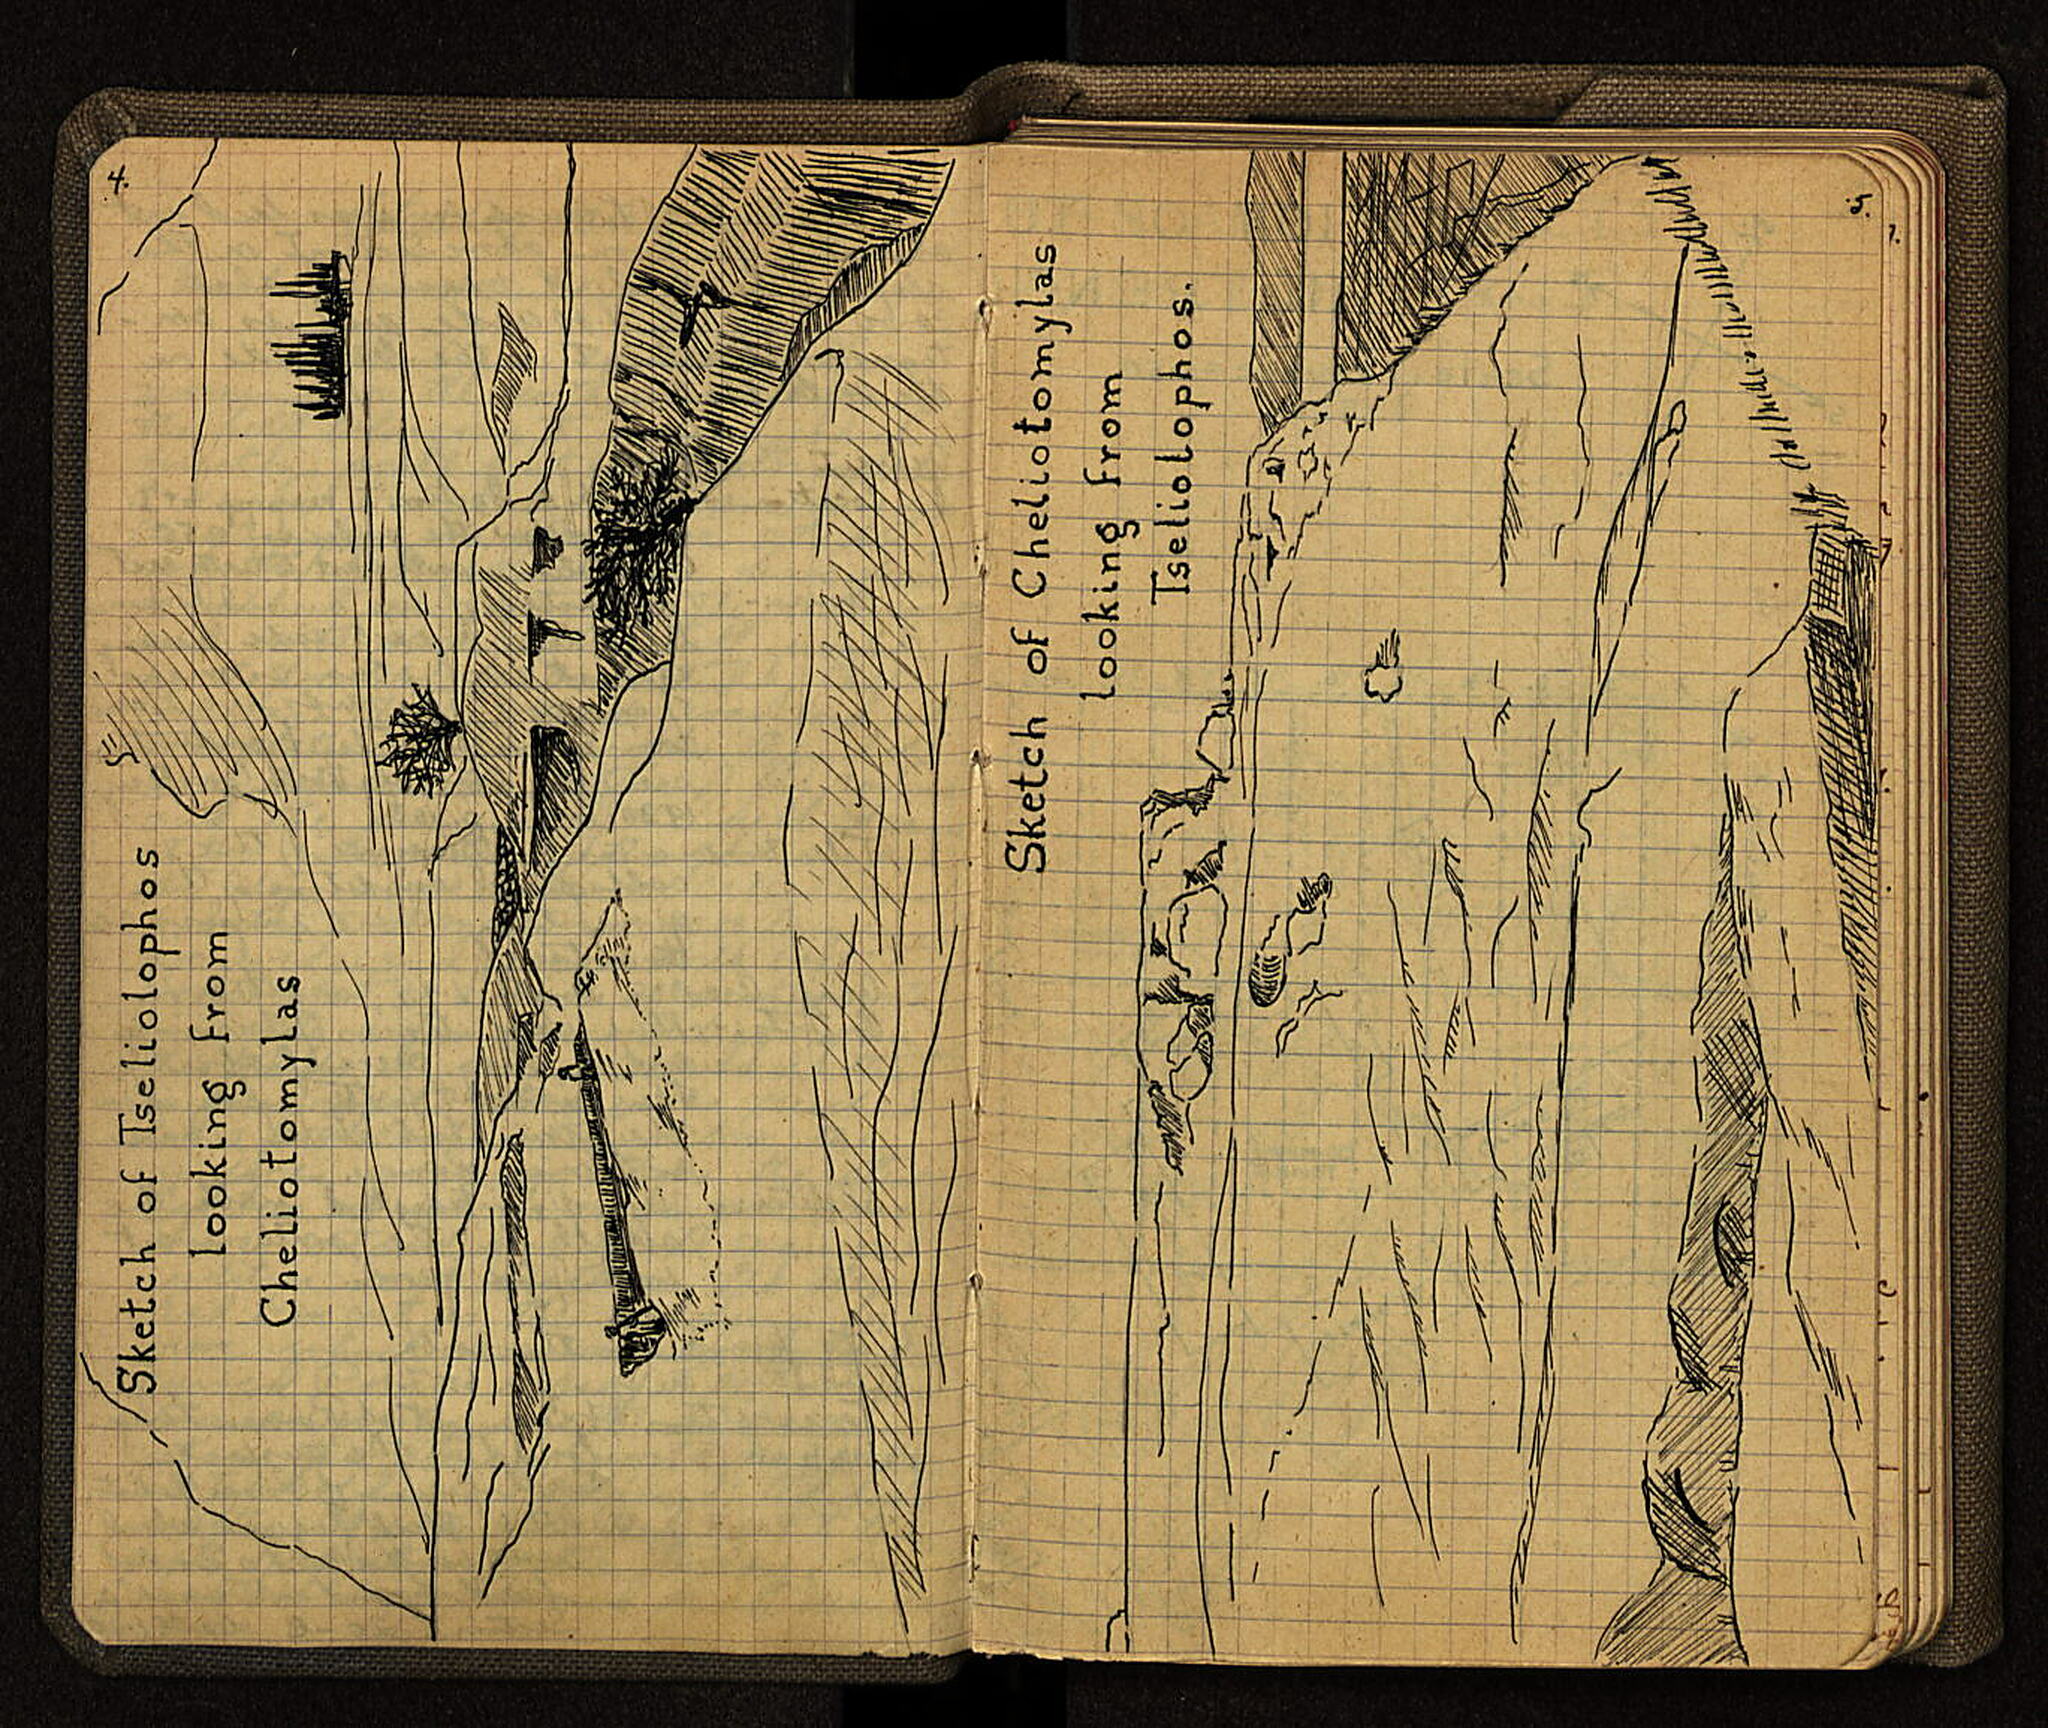 4.
Sketch of Tseliolophos
looking from
Cheliotomylas
5.
Sketch of Cheliotomylas
looking from
Tseliolophos.
7.